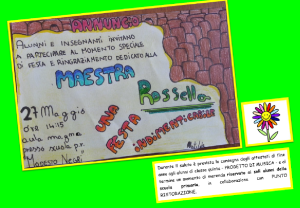 ANNUNCIO
ALUNNI E INSEGNANTI INVITANO
A PARTECIPARE AL MOMENTO SPECIALE
DI FESTA E RINGRAZIAMENTO DEDICATO ALLA
MAESTRA
Rossella
27 Maggio
ore 14:15
aula magna
presso scuola pr.
MODESTO NEGRI
UNA
FESTA
INDIMENTICABILE
Durante il saluto è prevista la consegna degli attestati di fine
anno agli alunni di classe quinta - PROGETTO DI MUSICA - e al
termine un momento di merenda riservato ai soli alunni della
scuola primaria in collaborazione con PUNTO
RISTORAZIONE.